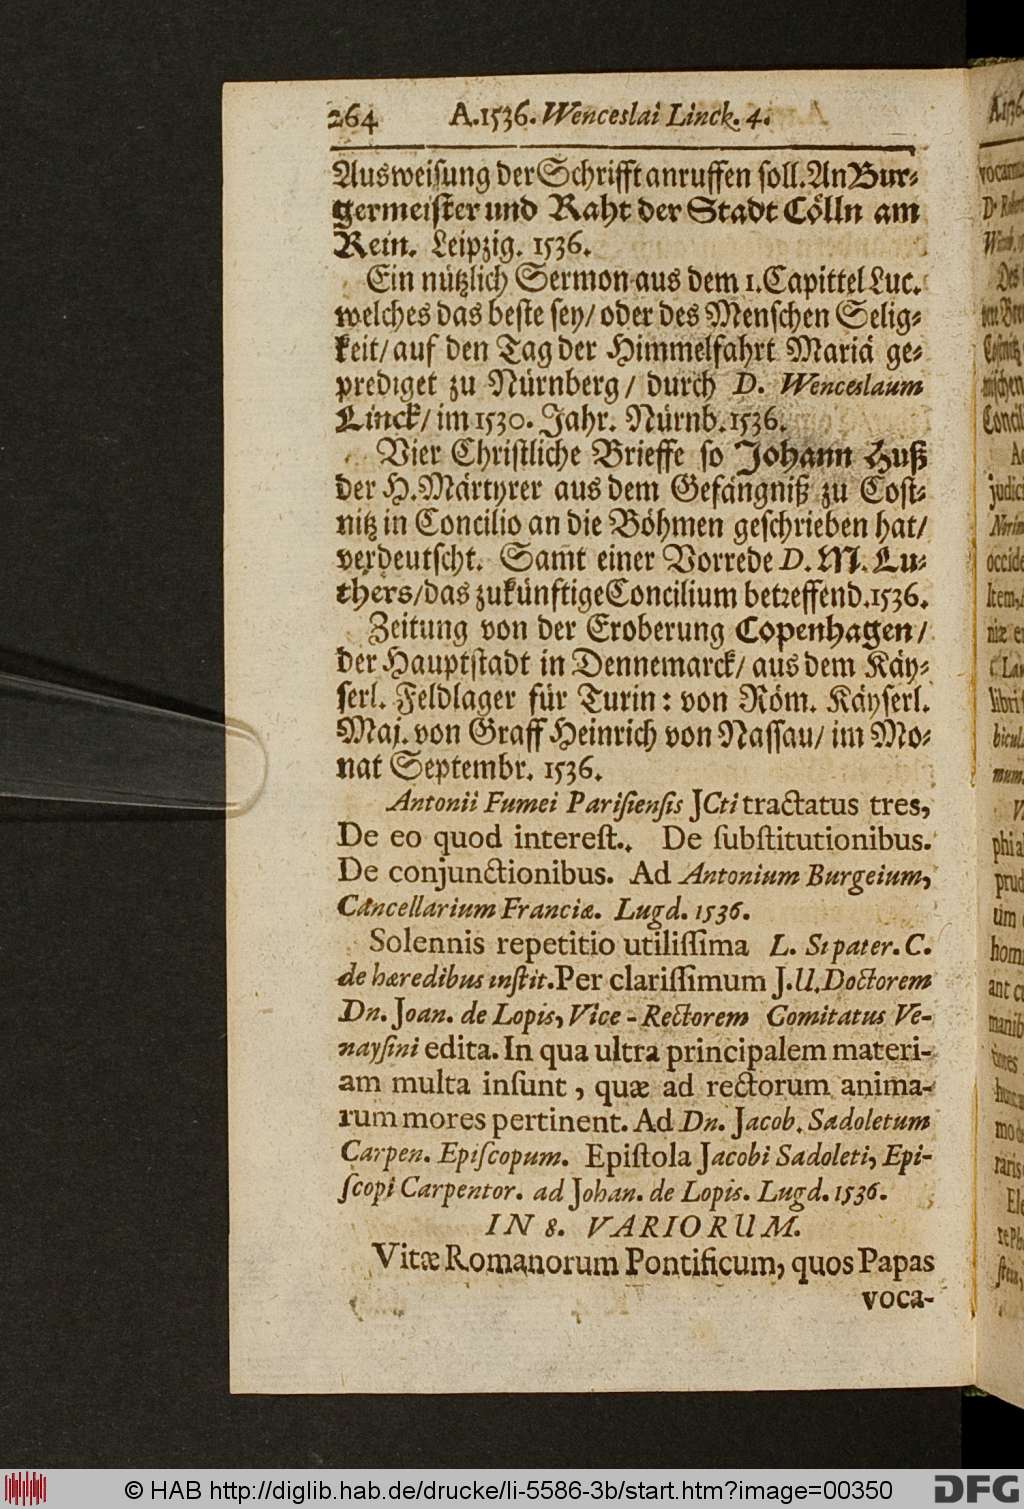 264 A. 1536. Wenceslai Linck. 4.
Ausweisung der Schrifft anruffen soll. An Bur⸗
germeister und Raht der Stadt Cölln am
Rein. Leipzig. 1536.
Ein nützlich Sermon aus dem 1. Capittel Luc.
welches das beste sey/ oder des Menschen Selig⸗
keit/ auf den Tag der Himmelfahrt Mariä ge⸗
prediget zu Nürnberg/ durch D. Wenceslaum
Linck/ im 1530. Jahr. Nürnb. 1536.
Vier Christliche Brieffe so Johann Huß
der H. Märtyrer aus dem Gefängniß zu Cost⸗
nitz in Concilio an die Böhmen geschrieben hat/
verdeutscht. Samt einer Vorrede D. M. Lu⸗
thers/ das zukünftige Concilium betreffend. 1536.
Zeitung von der Eroberung Copenhagen/
der Hauptstadt in Dennemarck/ aus dem Käy⸗
serl. Feldlager für Turin: von Röm. Käyserl.
Maj. von Graff Heinrich von Nassau/ im Mo⸗
nat Septembr. 1536.
Antonii Fumei Parisiensis JCti tractatus tres,
De eo quod interest. De substitutionibus.
De conjunctionibus. Ad Antonium Burgeium,
Cancellarium Franciæ. Lugd. 1536.
Solennis repetitio utilissima L. Si pater. C.
de hæredibus instit. Per clarissimum J. U. Doctorem
Dn. Joan. de Lopis, Vice-Rectorem Comitatus Ve-
naysini edita. In qua ultra principalem materi-
am multa insunt, quæ ad rectorum anima-
rum mores pertinent. Ad Dn. Jacob. Sadoletum
Carpen. Episcopum. Epistola Jacobi Sadoleti, Epi-
scopi Carpentor. ad Johan. de Lopis. Lugd. 1536.
IN 8. VARIORUM.
Vitæ Romanorum Pontificum, quos Papas
voca-
© HAB http://diglib.hab.de/drucke/li-5586-3b/start.htm?image=00350
DFG